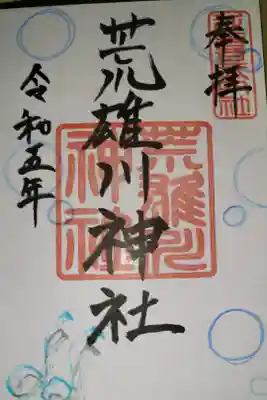 奉拝
荒雄川神社
令和五年
荒雄川
神社